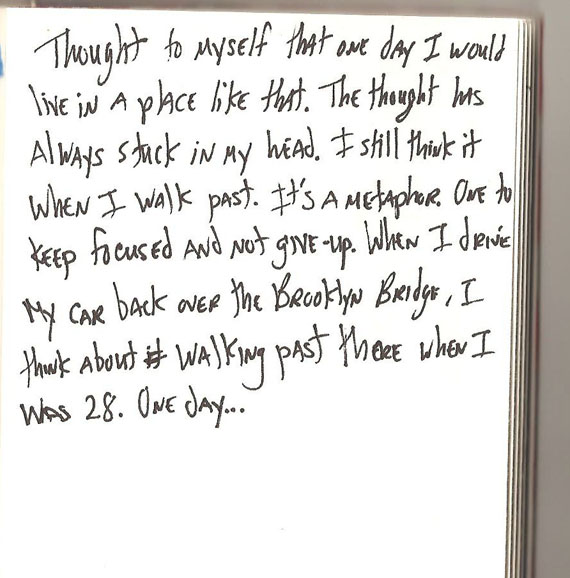 Thought to myself that one day I would
live in a place like that. The thought has
always stuck in my head. I still think it
when I walk past. It's a metaphor. One to
keep focused and not give-up. When I drive
my car back over the Brooklyn Bridge, I
think about it walking past there when I
was 28. One day...